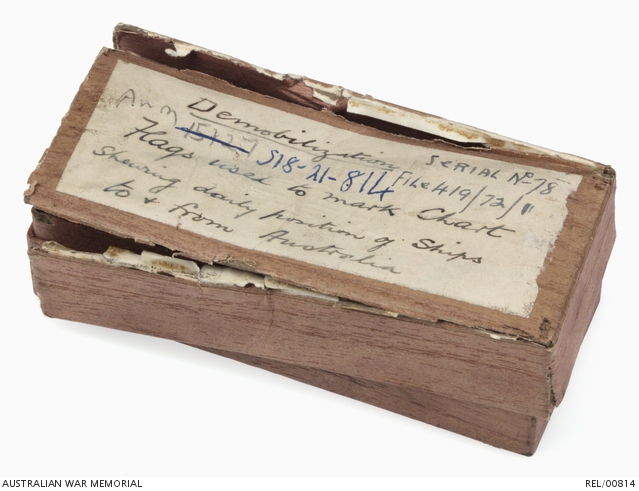 Demobilization
SERIAL Nº 78
AWM
15127
S18-21-814
FILE 419/72/11
Flags used to mark Chart
Shewing daily position of Ships
to & from Australia
AUSTRALIAN WAR MEMORIAL
REL/00814